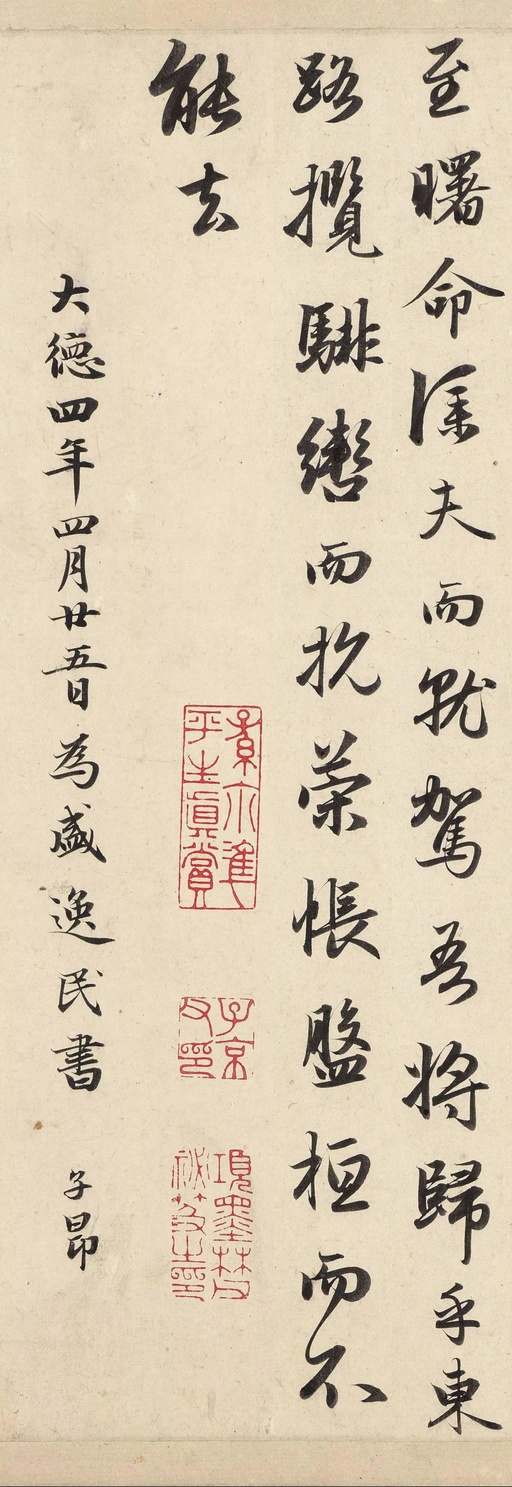 至曙命僕夫而就駕吾將歸乎東
路攬騑轡而抗榮帳盤桓而不
能去
大德四年四月廿五日為盛逸民書 子昂
平生真賞
子京父印
項墨林父祕笈之印